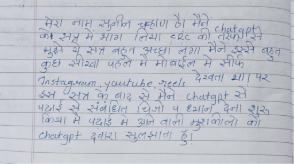 मेरा नाम सुनील चव्हाण है। मैंने chatgpt
के सत्र में भाग लिया CRC की तरफ से
मुझे ये सत्र बहुत अच्छा लगा मैंने इससे बहुत
कुछ सीखा पहले में मोबाईल में सिर्फ
Instagram, youtube reels देखता था पर
इस सत्र के बाद से मैंने chatgpt से
पढाई से संबंधित चिजो पे ध्यान देना शुरू
किया में पढाई में आने वाली मुश्कीलो को
chatgpt द्वारा सुलझाता हु।